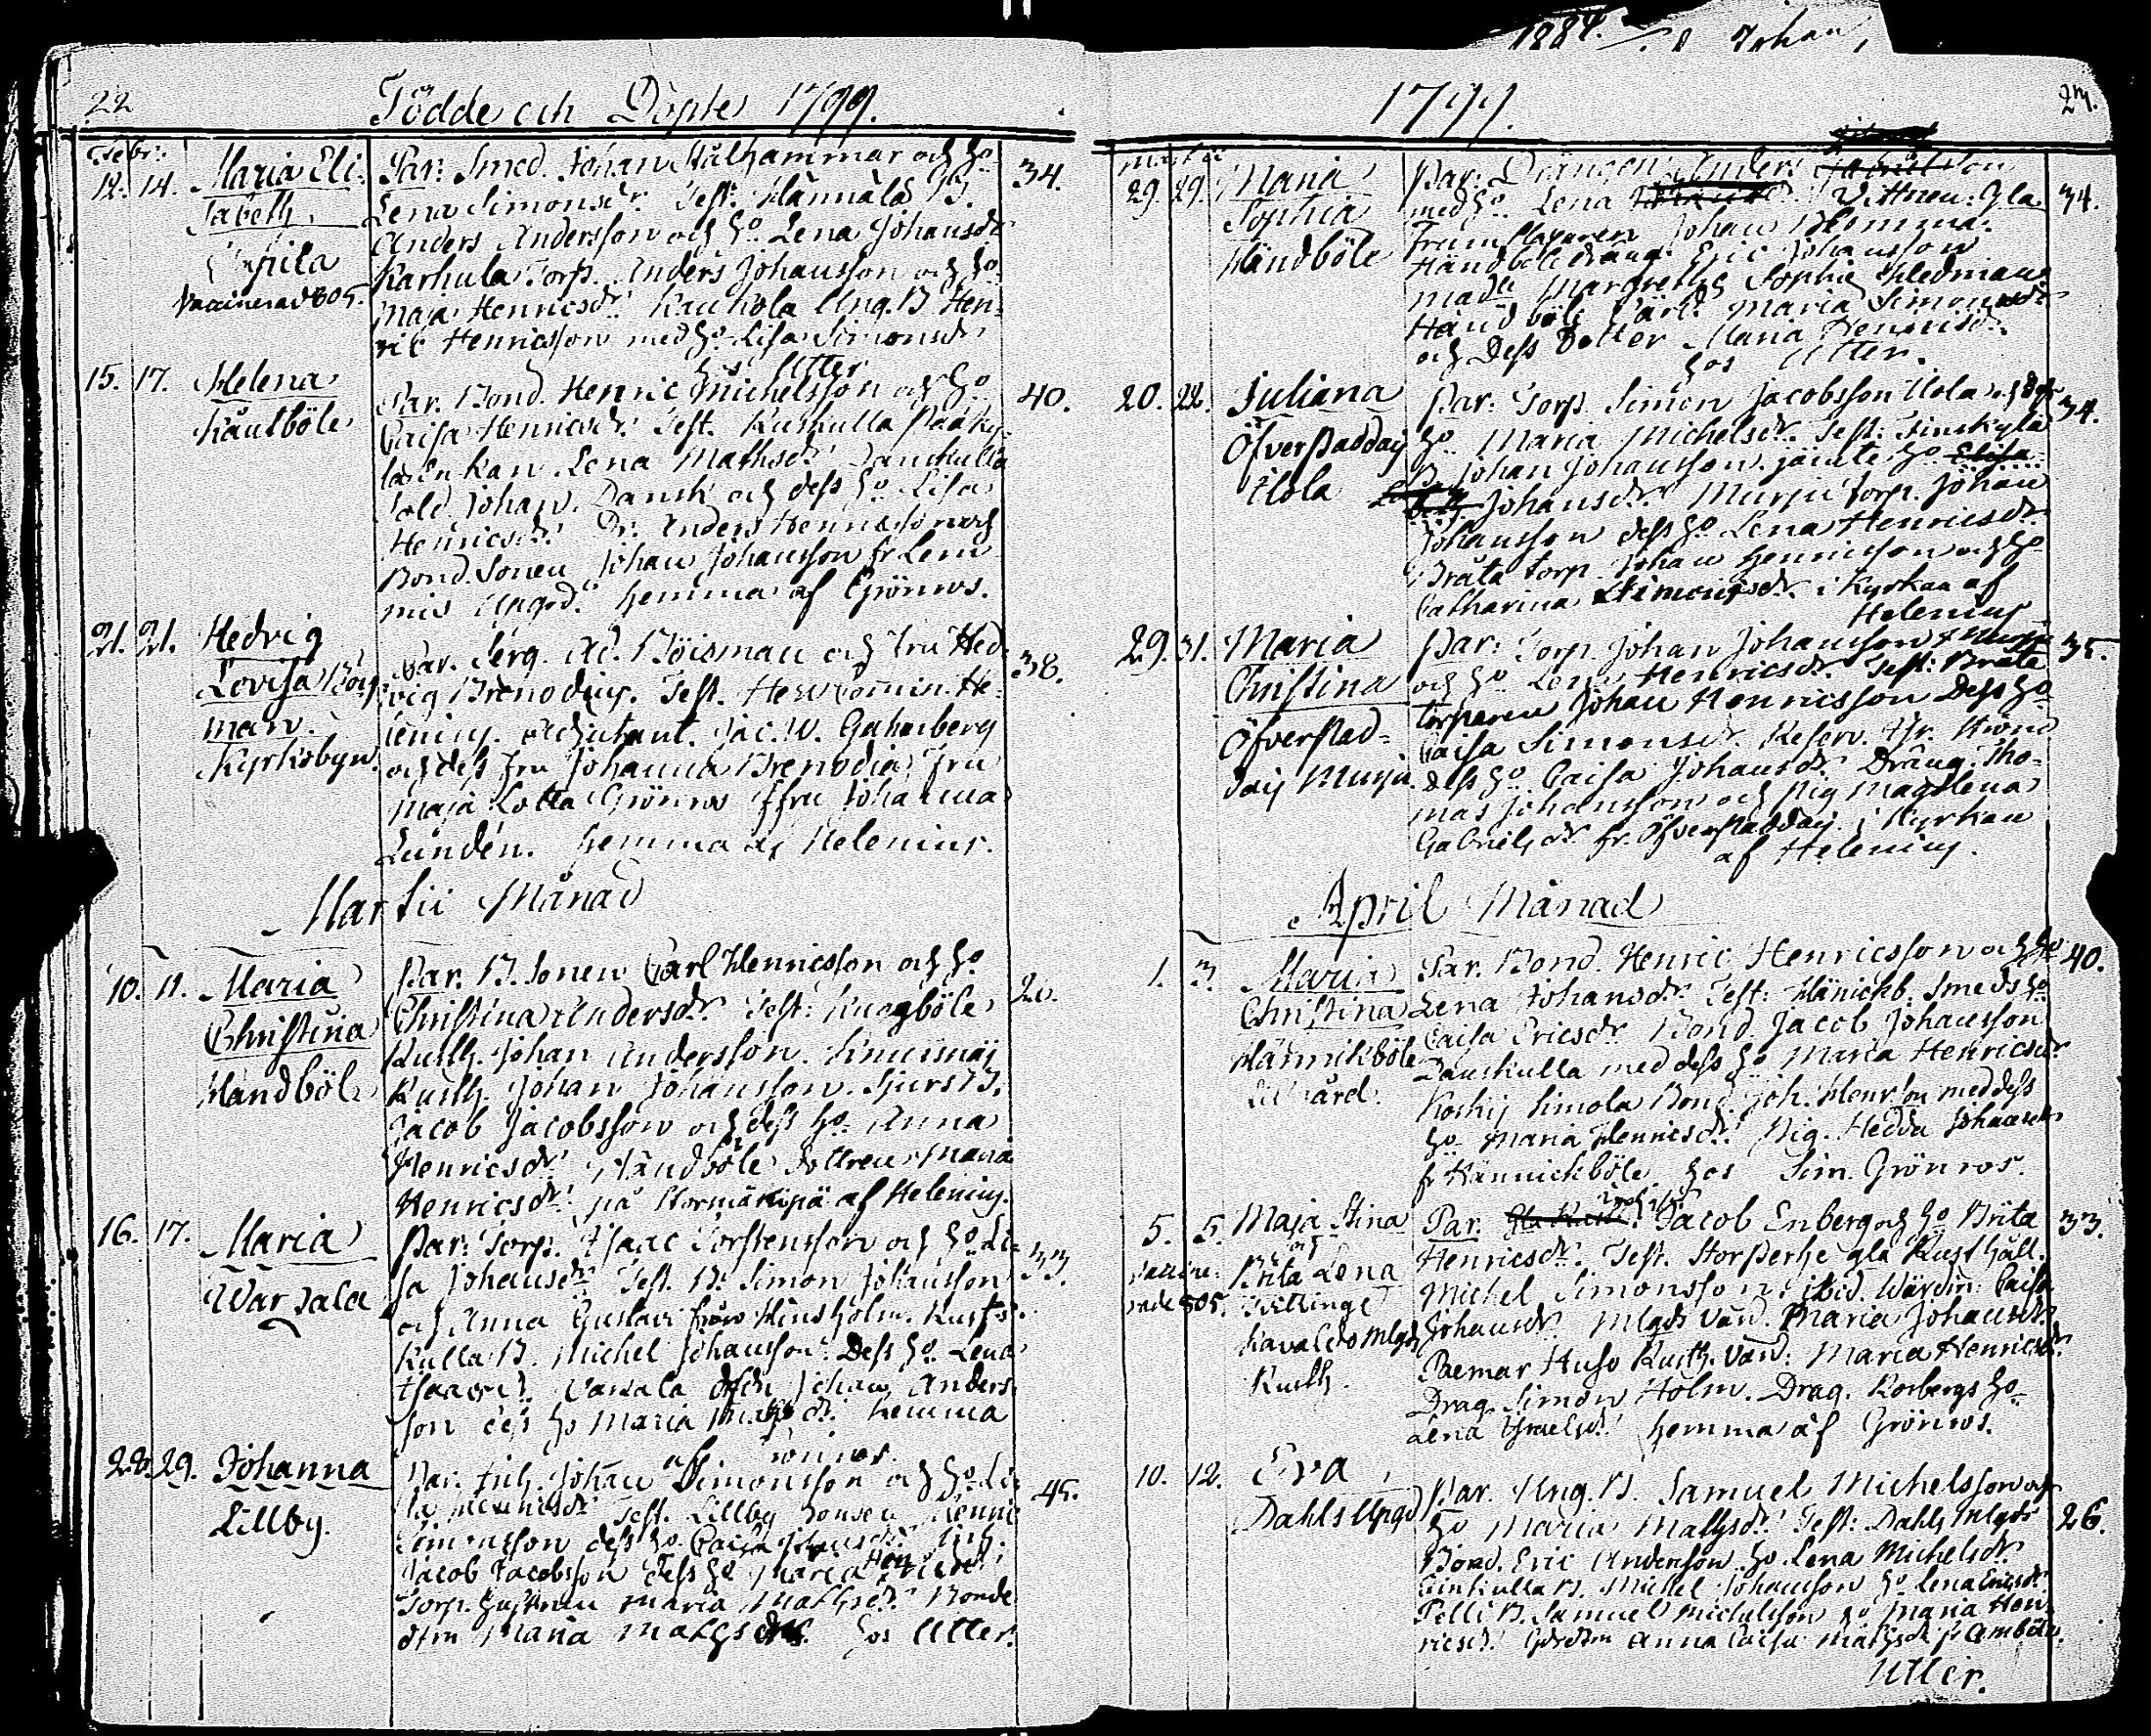 1884. Johan,
22
Födde och Döpte 1799.
Febr:
12. 14. Maria Eli-
sabeth,
Vaccinerad 805.
Par: Smed. Johan Stålhammar och ho
Lena Simonsdr. Test: Hannula B.
Anders Andersson och ho Lena Johansdr
Karhula Torp. Anders Johansson och ho
Maja Henricsdr. Kaukola Ung. B. Hen-
ric Henricsson med ho Lisa Simonsdr
hos Utter
34.
15. 17. Helena
Kåutböle
Par. Bond. Henric Michelsson och ho
Caisa Henricsdr. Test. Kuskulla
Enkan Lena Mathsdr. Danskulla
Sold. Johan Dansk och dess ho Lisa
Henricsdr. Dr. Anders Henricsson och
Bond. Sonen Johan Johansson fr Lem
Upgrd. hemma af Grönros.
40.
21. 21. Hedvig
Lovisa Böis
man.
Kyrkobyn.
Par. Serg. Ad. Böisman och Fru Hed-
vig Brenodius. Test. Herr Comin. He-
lenius. Adjutant. Jac. W. Gahnberg
och dess Fru Johanna Brenodia, Fru
Maja Lotta Grönros Fru Johanna
Lundén. hemma af Helenius.
38.
Martii Månad
10. 11. Maria
Christina
Handböle
Par. B. Sonen Carl Henricsson och ho
Christina Andersdr. Test:
Rusth. Johan Andersson.
Rusth. Johan Johansson. Sjurs B.
Jacob Jacobsson och dess ho Anna
Henricsdr. Handböle Maria
Henricsdr. på Stormäkipä af Helenius.
16. 17. Maria
Warsala
Par: Torp. Isaac Torstensson och ho Li-
sa Johansdr. Test. B. Simon Johansson
och Anna Gustavi från
Kulla B. Michel Johansson. Dess ho Lena
Isaacsd. Johan Anders-
son dess ho Maria hemma
af Grönros.
33.
28. 29. Johanna
Lillby.
Par. Inh. Johan Simonsson och ho Li-
sa Henricsdr Test. Lillby Henric
Simonsson dess ho Caisa Johansdr. Inh.
Jacob Jacobsson Dess ho Maria
Torp. Hustrun Maria Mathsd. Bonde
Maria Mathsdr. hos Utter.
45.
1799.
23.
Martii
29. 29. Maria
Sophia
Handböle
Par: Drängen Anders
med ho Lena Vittnen: Gla
Trumslagaren Johan Blomma.
Handböle dräng. Eric Johansson
Margretha Sophia Hedman
Handböle Maria Simonsdr
och Dess Dotter Maria Henricsdr.
hos Utter.
34.
20. 22. Juliana
Öfverstaddaij
Ilola
Par: Torp. Simon Jacobsson Ilola och dess
ho Maria Michelsdr. Test: Finskylä
B. Johan Johansson. jämte ho Elisa
beth Johansdr. Murju torp. Johan
Johansson dess ho Lena Henricsdr.
Bråta torp. Johan Henricsson och ho
Catharina i Kyrkan af
Helenius
34.
29. 31. Maria
Christina
Öfverstad-
daij Murju.
Par: Torp. Johan Johansson Murju
och ho Lena Henricsdr. Test: Bråta
torparen Johan Henricsson Dess ho
Caisa Simonsdr. Reserv. Kr. Strand
dess ho Caisa Johansdr. Dräng. Tho-
mas Johansson och Pig Magdlena
Gabrielsdr fr. Öfverstaddaij. i Kyrkan
af Helenius.
35.
April Månad
1. 3. Maria
Christina
Hännikböle
Par. Bond. Henric Henricsson och ho
Lena Johansdr. Test: Hänickb. Smeds ho
Caisa Ericsdr. Bond. Jacob Johansson
Danskulla med dess ho Maria Henricsdr
Koskis Simola Bond. Joh. Henrson med dess
ho Maria Henricsdr. Pig. Hedda Johansdr
fr Hännickböle hos Sim. Grönros.
40.
5. 5. Maja Stina
och
Brita Lena
Tvillinge
Vaccine-
rade 805.
Kavaldomlgd
Rusth.
Par. Jacob Enberg och ho Brita
Henricsdr. Test. Storsperhe gla Rusthåll.
Michel Simonsson, ibid. Värdin: Caisa
Johansdr. Mlgds Värd. Maria Johansdr.
Paemar Huso Rusth. Värd: Maria Henricsdr.
Drag. Simon Holm. Drag. Korbergs ho
Lena Israelsd. hemma af Grönros.
33.
10. 12. Eva
Dahls Upgd
Par. Ung. B. Samuel Michelsson och
ho Maria Mathsdr. Test: Dahls mlgds
Bond. Eric Andersson ho Lena Michelsdr.
B. Michel Johansson ho Lena Ericsdr.
Pelli B. Samuel Michelsson ho Maria Hen-
ricsd. Anna Caisa Mathsdr fr Amböle.
Utter.
26.